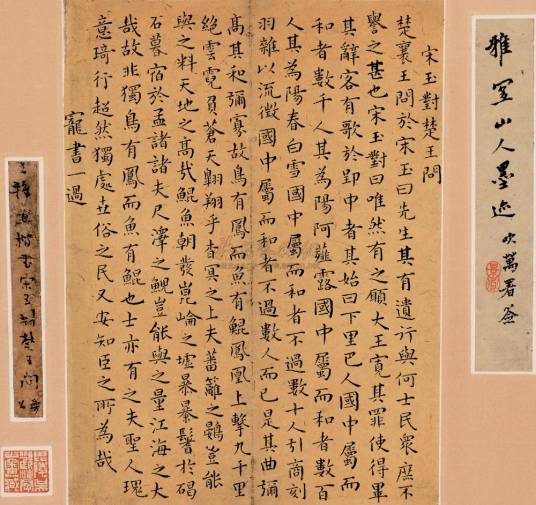 雅宜山人墨迹
宋玉對楚王問
楚襄王問於宋玉曰先生其有遺行與何士民衆庶不
譽之甚也宋玉對曰唯然有之願大王寬其罪使得畢
其辭客有歌於郢中者其始曰下里巴人國中屬而
和者數千人其為陽阿薤露國中屬而和者數百
人其為陽春白雪國中屬而和者不過數十人引商刻
羽雜以流徵國中屬而和者不過數人而已是其曲彌
髙其和彌寡故鳥有鳳而魚有鯤鳳凰上擊九千里
絶雲霓負蒼天翺翔乎杳冥之上夫蕃籬之鷃豈能
與之料天地之髙哉鯤魚朝發崑崘之墟暴鬐於碣
石暮宿於孟諸夫尺澤之鯢豈能與之量江海之大
哉故非獨鳥有鳳而魚有鯤也士亦有之夫聖人瑰
意琦行超然獨處世俗之民又安知臣之所為哉
寵書一過